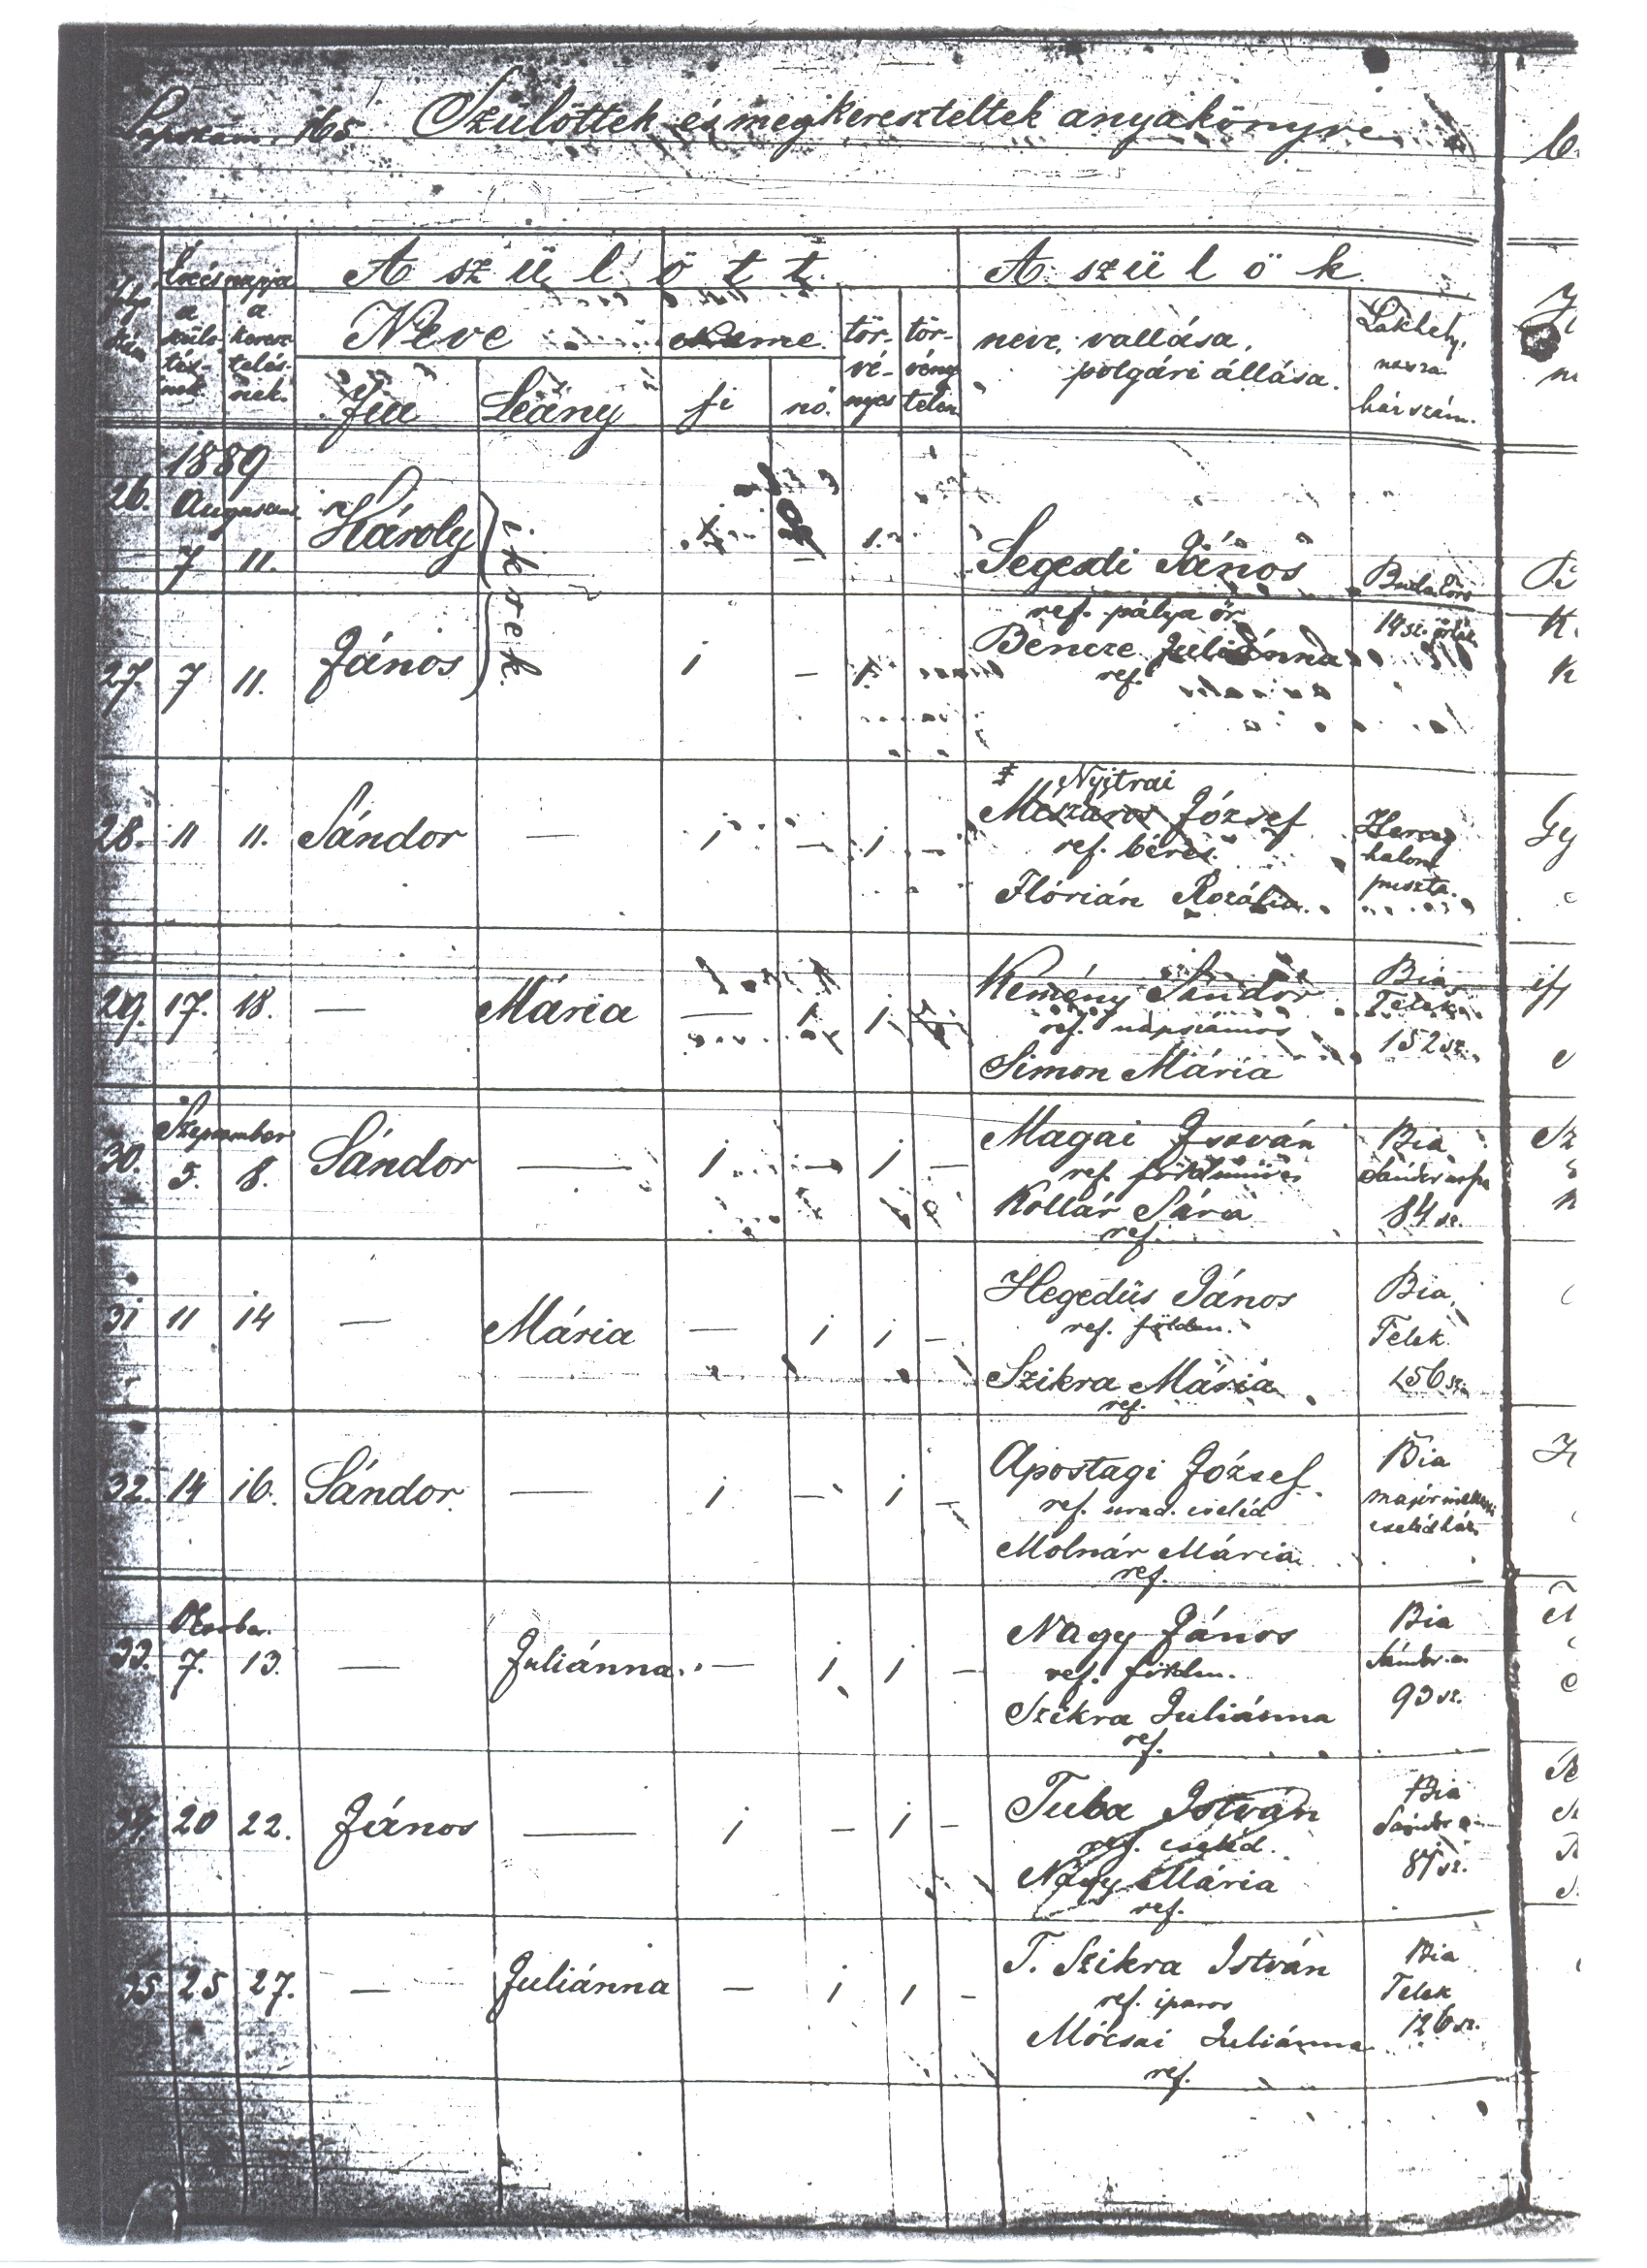 Lapszám 165 Szülöttek és megkereszteltek anyakönyve
Év és napja
A szülött
A szülők
a szüle- tés- nek
a keresz- telés- nek
Neve
neme
tör- vé- nyes
tör- vény- telen
neve, vallása,
polgári állása.
Lakhely,
házszám.
Fiu
Leány
fi
nő.
1889
26. Augustus
7 11. Károly 1. Segesdi János Budaörs
ikrek.
ref. pálya őr 14 sz. őrház
27. 7 11. János 1 — 1. Bencze Juliánna
ref.
Nyitrai
28. 11 11. Sándor — 1 — 1 — Mészáros József Herczeg
ref. béres halom
Flórián Rozália puszta.
29. 17. 18. — Mária — 1 1 Kemény Sándor Bia
ref. napszámos Telek
Simon Mária 152 sz.
September
30. 5. 8. Sándor — 1 — 1 — Magai István Bia
ref. földmüves
Kollár Sára 84 sz.
ref.
31 11 14 — Mária — 1 1 — Hegedüs János Bia,
ref. földm. Telek
Szikra Mária 156 sz.
ref.
32. 14 16. Sándor — 1 — 1 — Apostagi József Bia
ref. urad. cseléd major melletti
cselédház
Molnár Mária
ref.
October
33. 7. 13. — Juliánna — 1 1 — Nagy János Bia
ref. földm. Sándor u.
Szikra Juliánna 93 sz.
ref.
34. 20 22. János — 1 — 1 — Tuba István Bia
ref. cseléd Sándor u.
Nagy Mária 87 sz.
ref.
35 25 27. — Juliánna — 1 1 — T. Szikra István Bia
ref. iparos Telek
Mócsai Juliánna 126 sz.
ref.